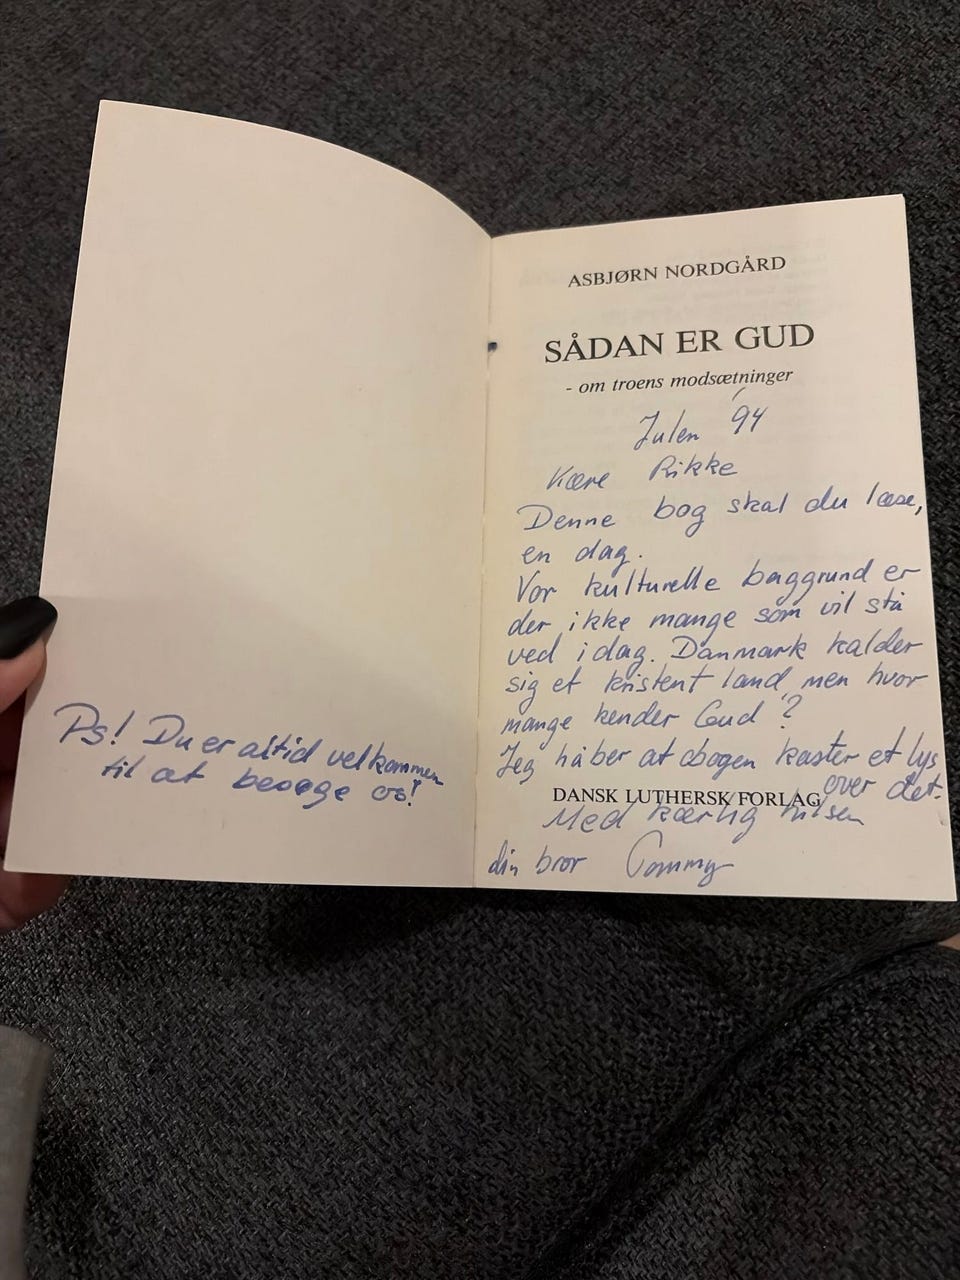 ASBJØRN NORDGÅRD
SÅDAN ER GUD
- om troens modsætninger
Julen '94
Kære Rikke
Denne bog skal du læse,
en dag.
Vor kulturelle baggrund er
der ikke mange som vil stå
ved i dag. Danmark kalder
sig et kristent land, men hvor
mange kender Gud?
Jeg håber at bogen kaster et lys
over det.
DANSK LUTHERSK FORLAG
Med kærlig hilsen
din bror Tommy
Ps! Du er altid velkommen
til at besøge os!